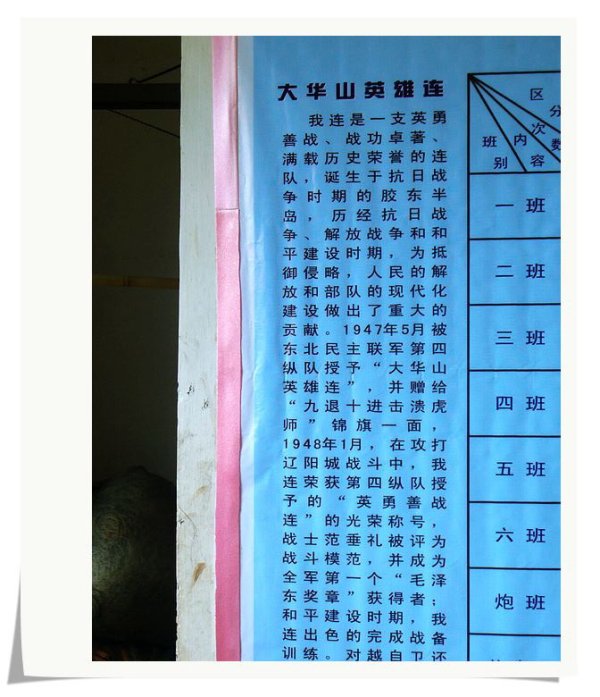 大华山英雄连
我连是一支英勇
善战、战功卓著、
满载历史荣誉的连
队，诞生于抗日战
争时期的胶东半
岛，历经抗日战
争、解放战争和和
平建设时期，为抵
御侵略，人民的解
放和部队的现代化
建设做出了重大的
贡献。1947年5月被
东北民主联军第四
纵队授予“大华山
英雄连”，并赠给
“九退十进击溃虎
师”锦旗一面，
1948年1月，在攻打
辽阳城战斗中，我
连荣获第四纵队授
予的“英勇善战
连”的光荣称号，
战士范垂礼被评为
战斗模范，并成为
全军第一个“毛泽
东奖章”获得者；
和平建设时期，我
连出色的完成战备
训练。对越自卫还
区分
次数
内容
班别
一班
二班
三班
四班
五班
六班
炮班